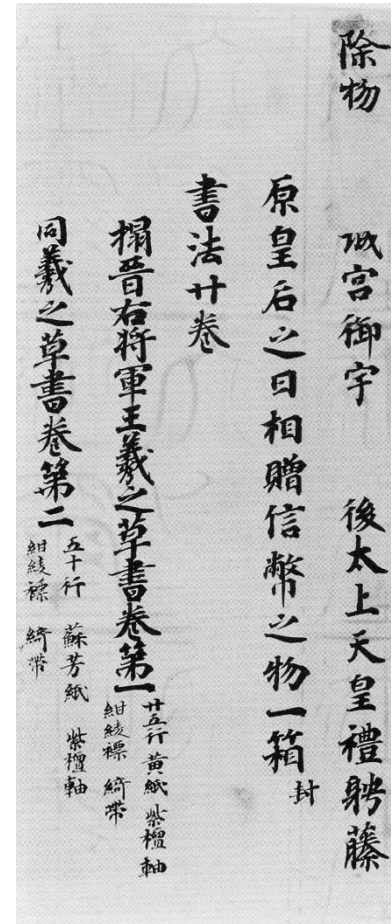 除物 城宮御宇 後太上天皇禮聘藤
原皇后之日相贈信幣之物一箱 封
書法廿卷
搨晉右将軍王羲之草書卷第一
廿五行 黃紙 紫檀軸
紺綾褾 綺帶
同羲之草書卷第二
五十行 蘇芳紙 紫檀軸
紺綾褾 綺帶